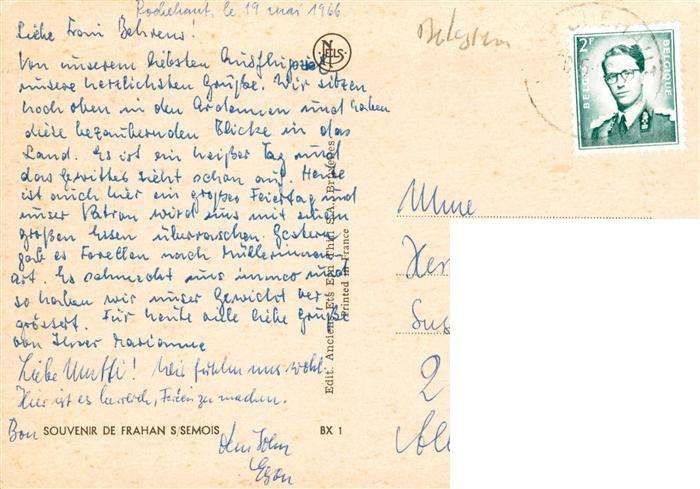 Rochehaut, le 19 mai 1966
Liebe Frau Behrens!
Von unserem liebsten Ausflugsort
unsere herzlichsten Grüße. Wir sitzen
hoch oben in den Ardennen und haben
diese bezaubernden Blicke in das
Land. Es ist ein heißer Tag und
das Gewitter zieht schon auf. Heute
ist auch hier ein großer Feiertag und
unser Patron wird uns mit einem
großen Essen überraschen. Gestern
gab es Forellen nach Müllerinnen
art. Es schmeckt uns immer und
so haben wir unser Gewicht ver
grössert. Für heute viele liebe Grüße
von Ihrer Marianne
Liebe Mutti! Wir fühlen uns wohl.
Hier ist es herrlich, Ferien zu machen.
Dein Sohn
Egon
NELS
Edit. Anciens Ets Ern. Thill S.A. Bruxelles
Printed in France
Bon SOUVENIR DE FRAHAN S/SEMOIS BX 1
2F
BELGIE BELGIQUE
Mme
Her
Sus
2
Alle